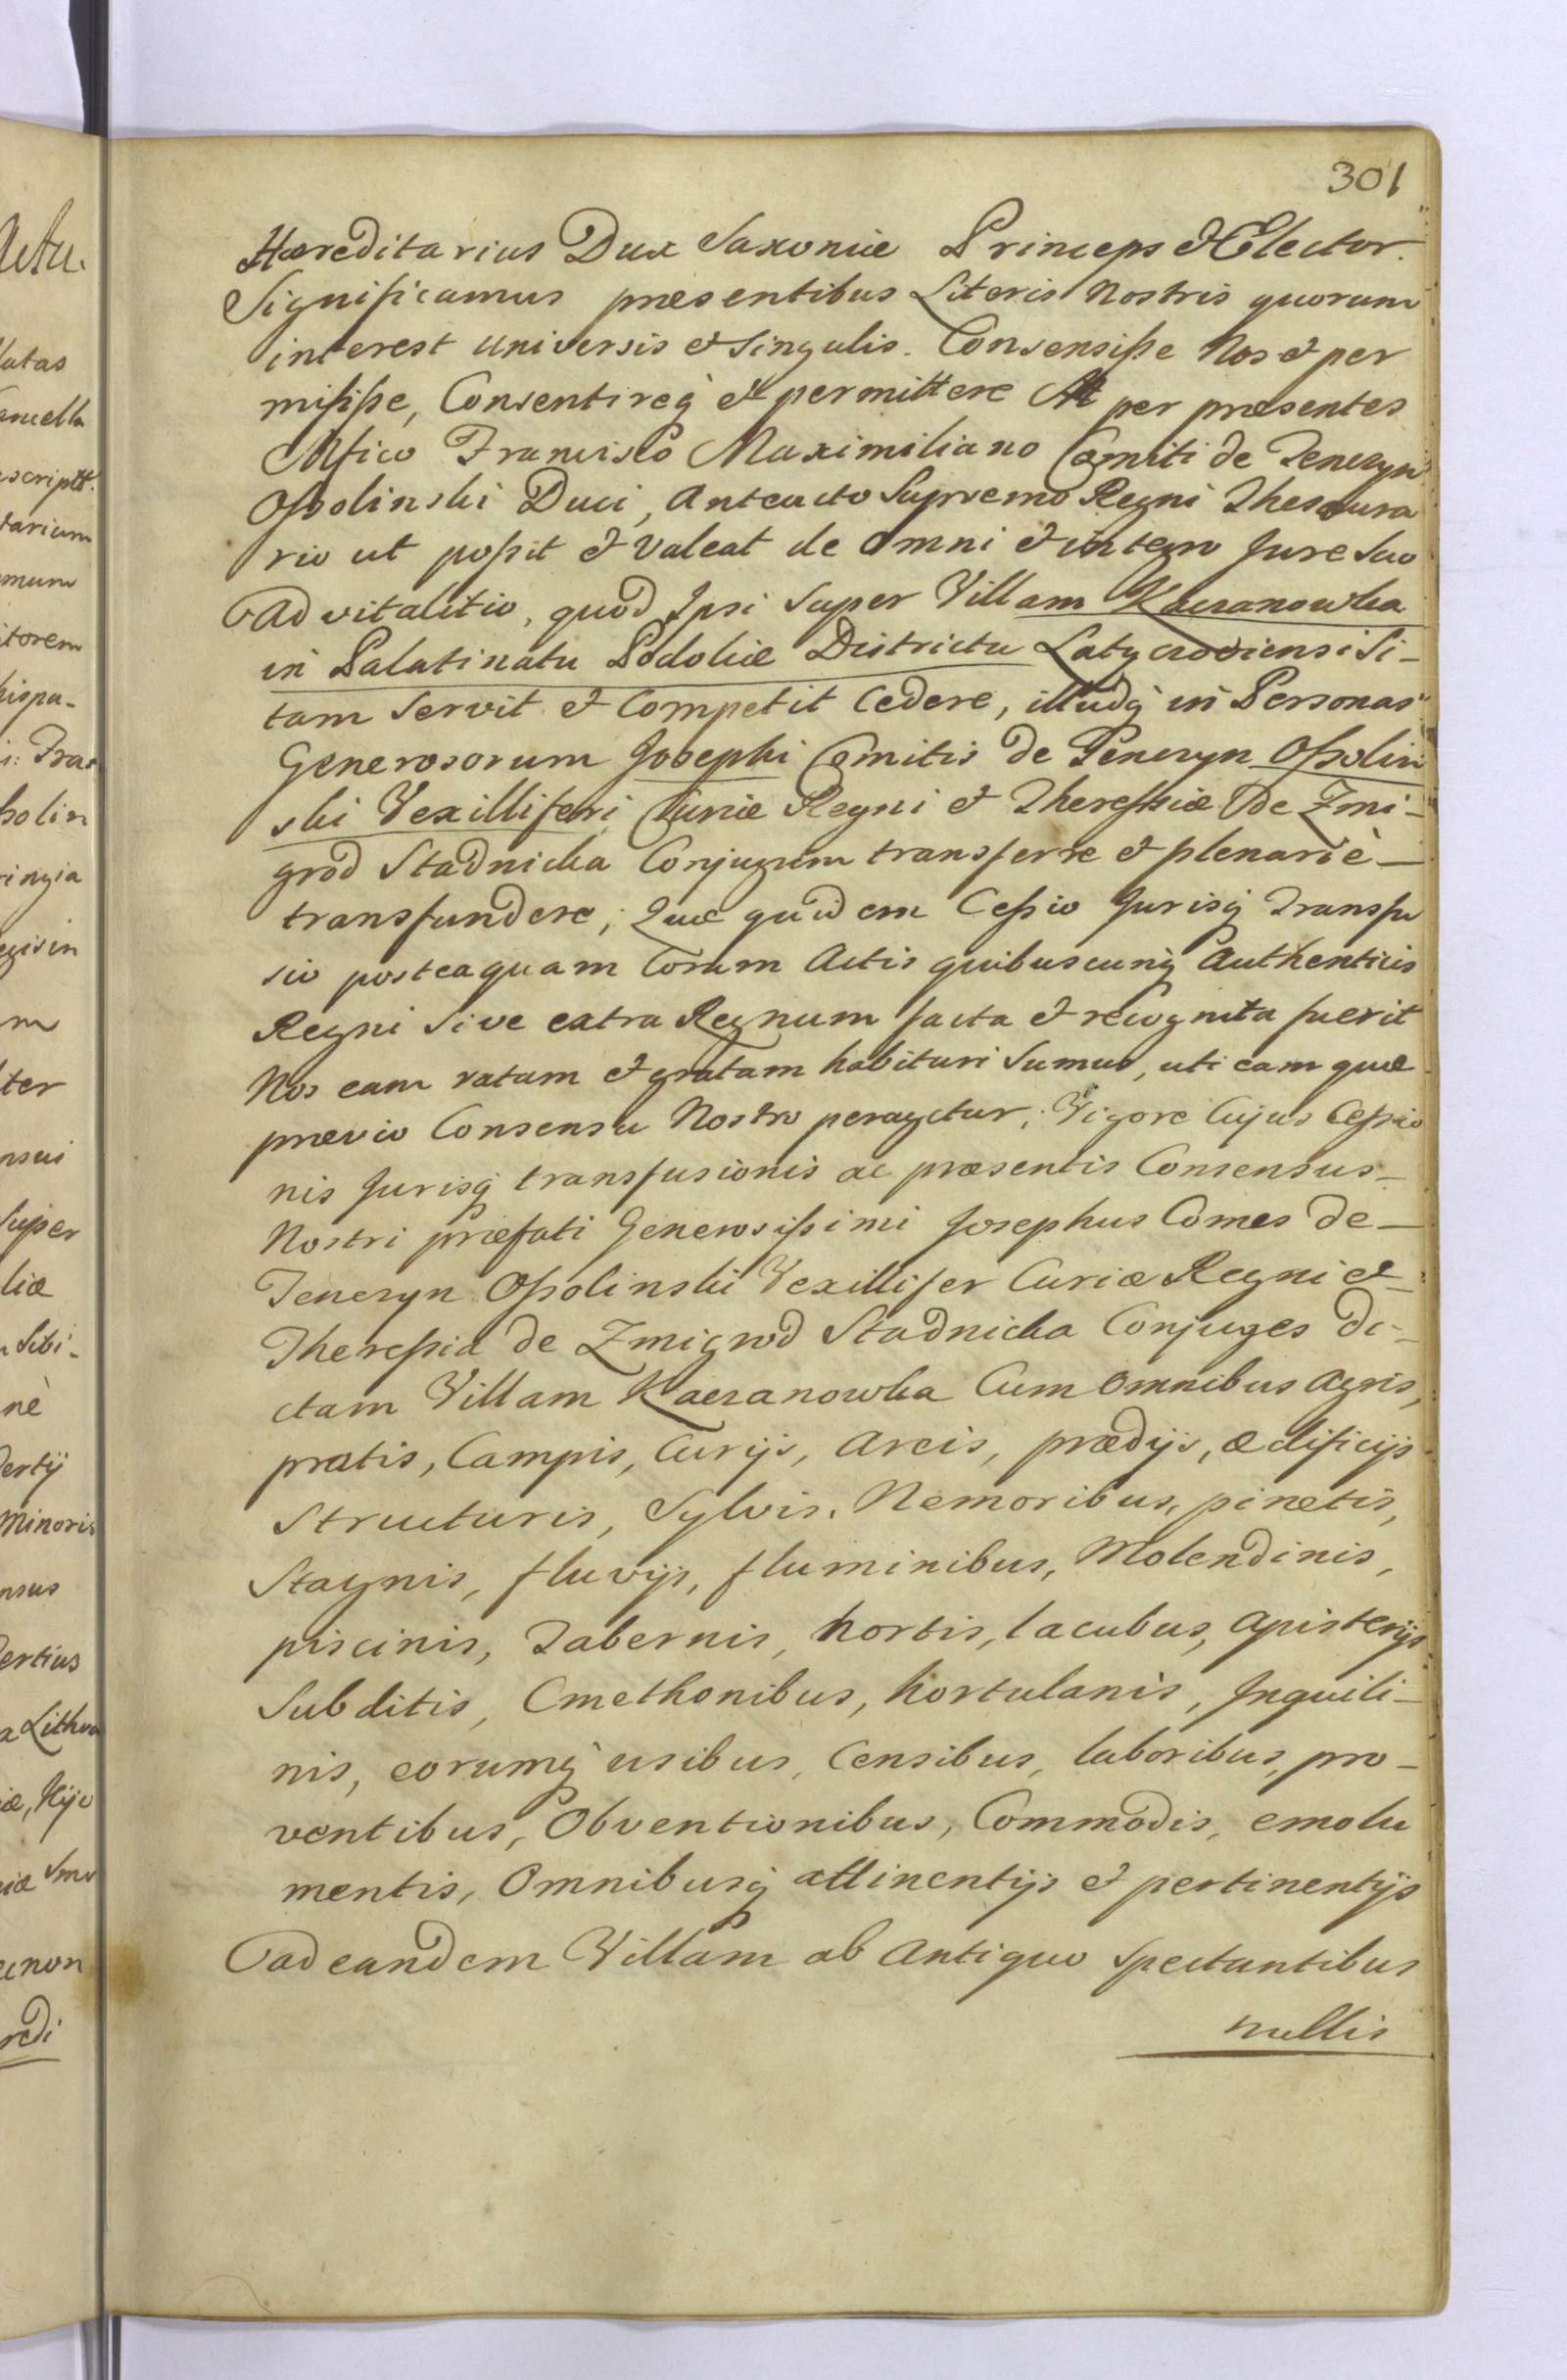 301
Hæreditarius Dux Saxoniæ Princeps & Elector.
Significamus præsentibus Literis Nostris quorum
interest universis et Singulis. Consensiſse Nos et per
misiſse, Consentireq́ et permittere per præsentes
Mfico Francisco Maximiliano Comiti de Tenczyn
Oſsolinski Duci, Anteacto Supremo Regni Thesaura
rio ut poſsit et Valeat de omni et integro Jure Suo
Advitalitio, quod Ipsi Super Villam Kaczanowka
in Palatinatu Podoliæ Districtu Latyczoviensi Si-
tam Servit et Competit Cedere, illudq́ in Personas
Generosorum Josephi Comitis de Tenczyn Oſsolin
ski Vexilliferi Curiæ Regni et Thereſsiæ De Zmi-
grod Stadnicka Conjugum transferre et plenariè-
transfundere; Quæ quidem Ceſsio Jurisq́ Transfu
sio posteaquam Coram Actis quibuscunq́ Authenticis
Regni Sive extra Regnum facta et recognita fuerit
Nos eam ratam et gratam habituri Sumus, uti eam quæ
prævio Consensu Nostro peragetur; Vigore Cujus Ceſsio
nis Jurisq́ transfusionis ac præsentis Consensus-
Nostri præfati Generosiſsimi Josephus Comes de-
Tenczyn Oſsolinski Vexillifer Curiæ Regni et
Thereſsia de Zmigrod Stadnicka Conjuges di-
ctam Villam Kaczanowka Cum omnibus agris,
pratis, Campis, Curijs, Areis, prædijs, ædificijs
Structuris, Sylvis, Nemoribus, pinetis,
Stagnis, fluvijs, fluminibus, Molendinis,
piscinis, Tabernis, hortis, lacubus, apisterijs
Subditis, Cmethonibus, hortulanis, Inquili-
nis, eorumq́ usibus, Censibus, laboribus, pro-
ventibus, Obventionibus, Commodis, emolu
mentis, Omnibusq́ attinentijs et pertinentijs
ad eandem Villam ab Antiquo Spectantibus
nullis